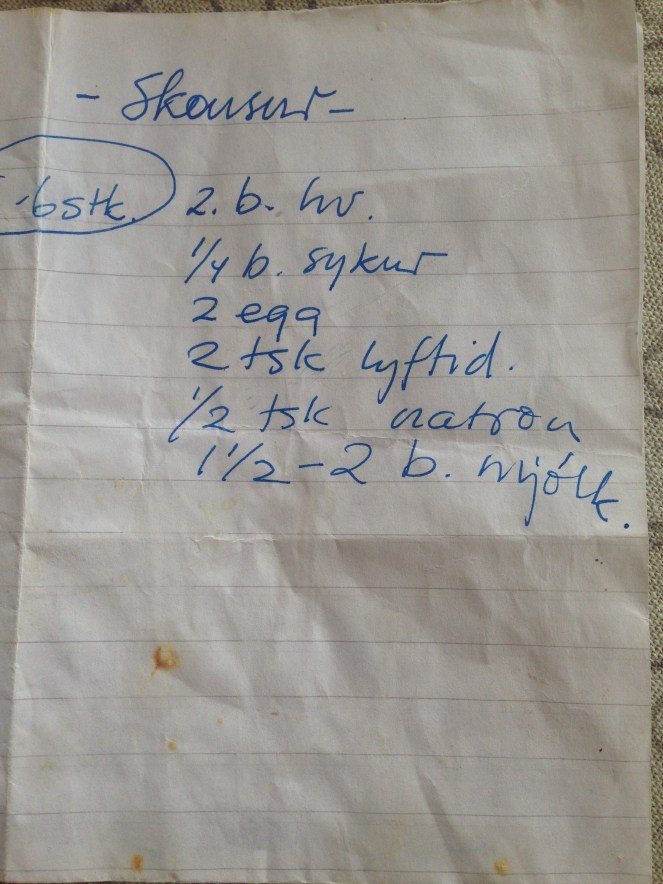 - Skonsur -
-6 stk.
2. b. hv.
1/4 b. sykur
2 egg
2 tsk lyftid.
1/2 tsk natron
1 1/2 - 2 b. mjólk.